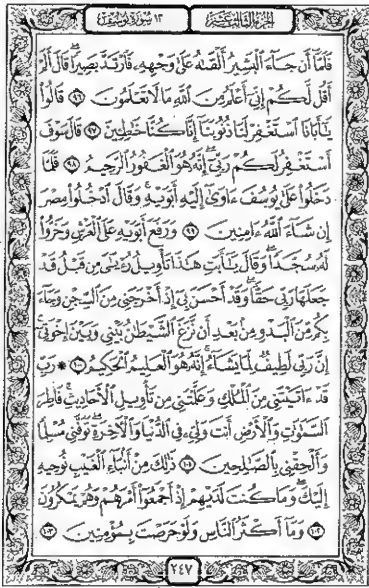 الجزء الثالث عشر ١٣ سورة يوسف
فَلَمَّآ أَن جَآءَ ٱلْبَشِيرُ أَلْقَىٰهُ عَلَىٰ وَجْهِهِۦ فَٱرْتَدَّ بَصِيرًا ۖ قَالَ أَلَمْ
أَقُل لَّكُمْ إِنِّىٓ أَعْلَمُ مِنَ ٱللَّهِ مَا لَا تَعْلَمُونَ ٩٦ قَالُوا۟
يَٰٓأَبَانَا ٱسْتَغْفِرْ لَنَا ذُنُوبَنَآ إِنَّا كُنَّا خَٰطِـِٔينَ ٩٧ قَالَ سَوْفَ
أَسْتَغْفِرُ لَكُمْ رَبِّىٓ ۖ إِنَّهُۥ هُوَ ٱلْغَفُورُ ٱلرَّحِيمُ ٩٨ فَلَمَّا
دَخَلُوا۟ عَلَىٰ يُوسُفَ ءَاوَىٰٓ إِلَيْهِ أَبَوَيْهِ وَقَالَ ٱدْخُلُوا۟ مِصْرَ
إِن شَآءَ ٱللَّهُ ءَامِنِينَ ٩٩ وَرَفَعَ أَبَوَيْهِ عَلَى ٱلْعَرْشِ وَخَرُّوا۟
لَهُۥ سُجَّدًا ۖ وَقَالَ يَٰٓأَبَتِ هَٰذَا تَأْوِيلُ رُءْيَٰىَ مِن قَبْلُ قَدْ
جَعَلَهَا رَبِّى حَقًّا ۖ وَقَدْ أَحْسَنَ بِىٓ إِذْ أَخْرَجَنِى مِنَ ٱلسِّجْنِ وَجَآءَ
بِكُم مِّنَ ٱلْبَدْوِ مِنۢ بَعْدِ أَن نَّزَغَ ٱلشَّيْطَٰنُ بَيْنِى وَبَيْنَ إِخْوَتِىٓ ۚ
إِنَّ رَبِّى لَطِيفٌ لِّمَا يَشَآءُ ۚ إِنَّهُۥ هُوَ ٱلْعَلِيمُ ٱلْحَكِيمُ ١٠٠ ۞ رَبِّ
قَدْ ءَاتَيْتَنِى مِنَ ٱلْمُلْكِ وَعَلَّمْتَنِى مِن تَأْوِيلِ ٱلْأَحَادِيثِ ۚ فَاطِرَ
ٱلسَّمَٰوَٰتِ وَٱلْأَرْضِ أَنتَ وَلِىِّۦ فِى ٱلدُّنْيَا وَٱلْءَاخِرَةِ ۖ تَوَفَّنِى مُسْلِمًا
وَأَلْحِقْنِى بِٱلصَّٰلِحِينَ ١٠١ ذَٰلِكَ مِنْ أَنۢبَآءِ ٱلْغَيْبِ نُوحِيهِ
إِلَيْكَ ۖ وَمَا كُنتَ لَدَيْهِمْ إِذْ أَجْمَعُوٓا۟ أَمْرَهُمْ وَهُمْ يَمْكُرُونَ
١٠٢ وَمَآ أَكْثَرُ ٱلنَّاسِ وَلَوْ حَرَصْتَ بِمُؤْمِنِينَ ١٠٣
٢٤٧